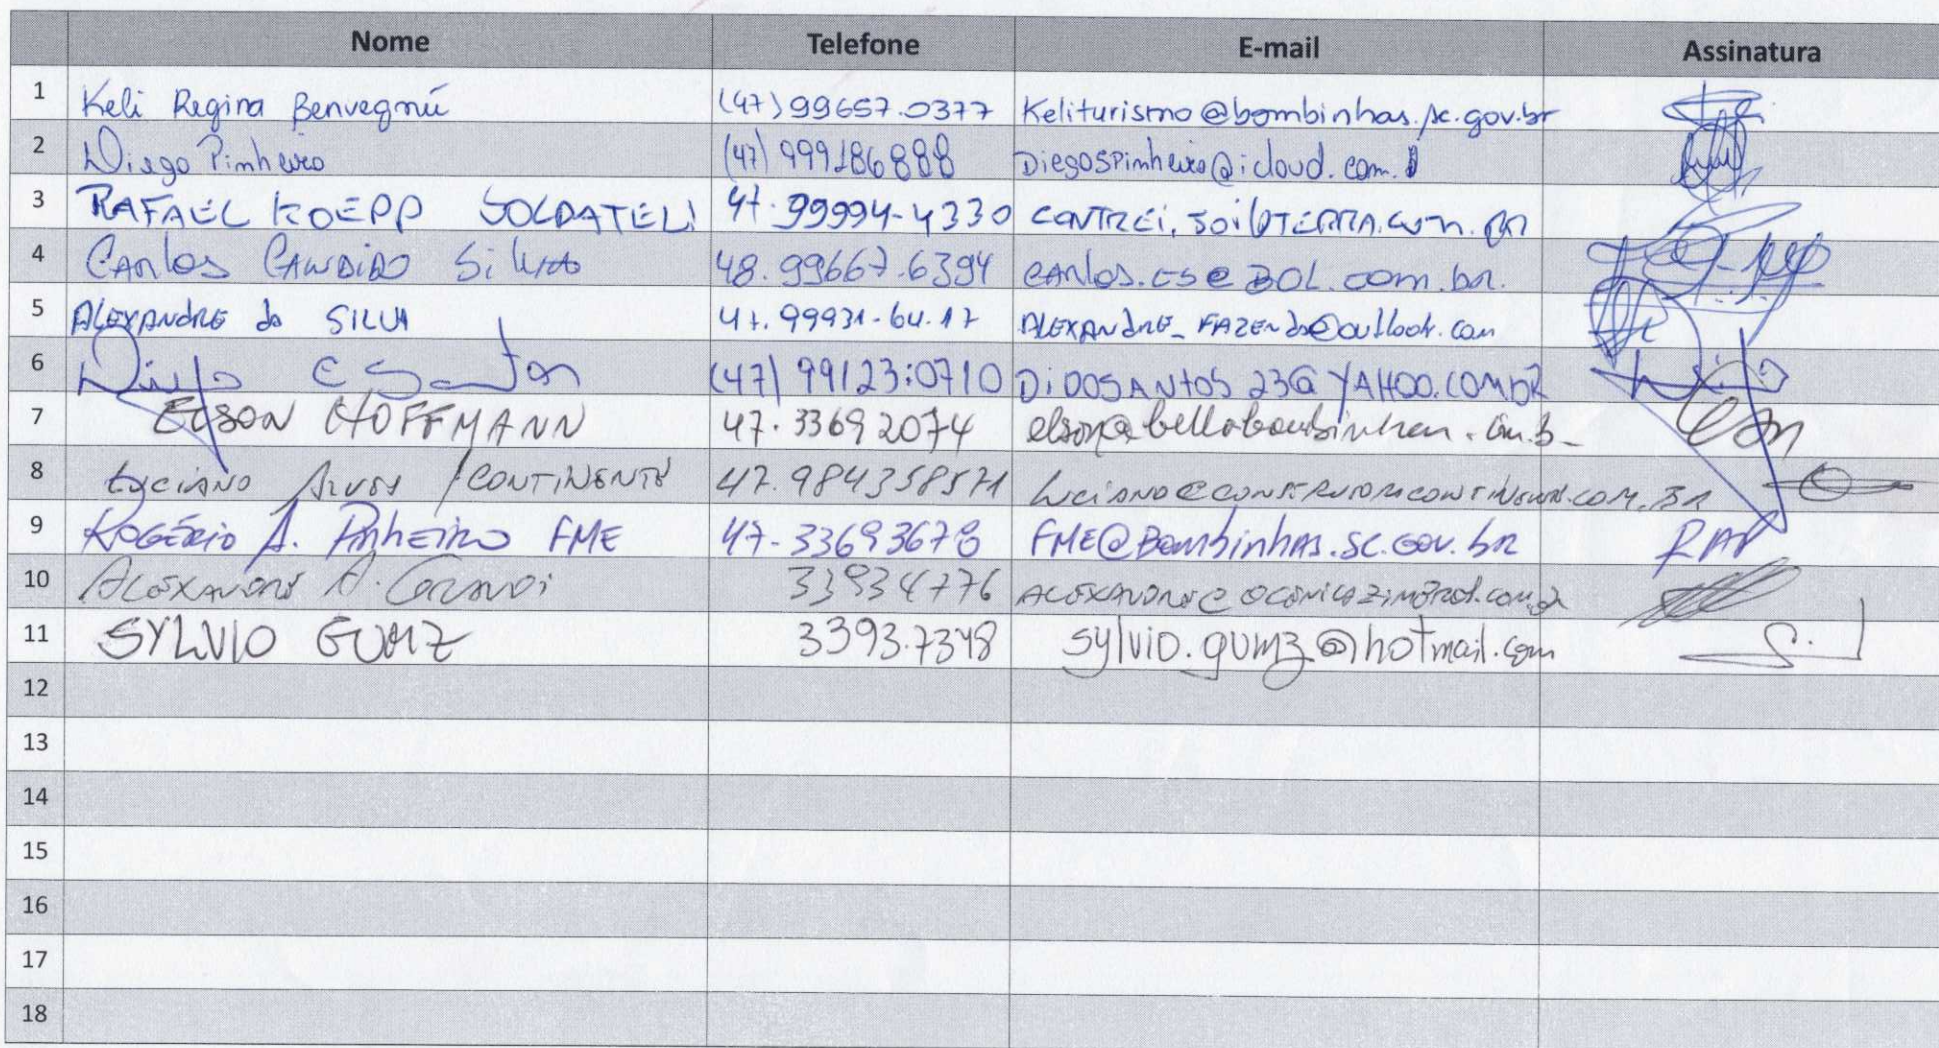 Nome Telefone E-mail Assinatura
1 Keli Regina Benvegnú (47) 99657.0377 Keliturismo@bombinhas.sc.gov.br
2 Diego Pinheiro (47) 999186888 DiegoSPinheiro@icloud.com.
3 RAFAEL KOEPP SOLDATELI 47.99994-4330
4 CARLOS CANDIDO SILVA 48.99667.6394 CARLOS.CS@BOL.com.br.
5 ALEXANDRE da SILVA 47.99931-64.17 ALEXANDRE_FAZENDA@outlook.com
6 (47) 99123:0710 DiDOSANTOS23@YAHOO.COM.BR
7 ELSON HOFFMANN 47.33692074
8 LUCIANO ALVES / CONTINENTE 47.984358571
9 ROGÉRIO A. PINHEIRO FME 47-33693678 FME@Bombinhas.SC.GOV.br RAP
10 ALEXANDRE A. 33934776
11 SYLVIO GUMZ 3393.7348 sylvio.gumz@hotmail.com
12
13
14
15
16
17
18